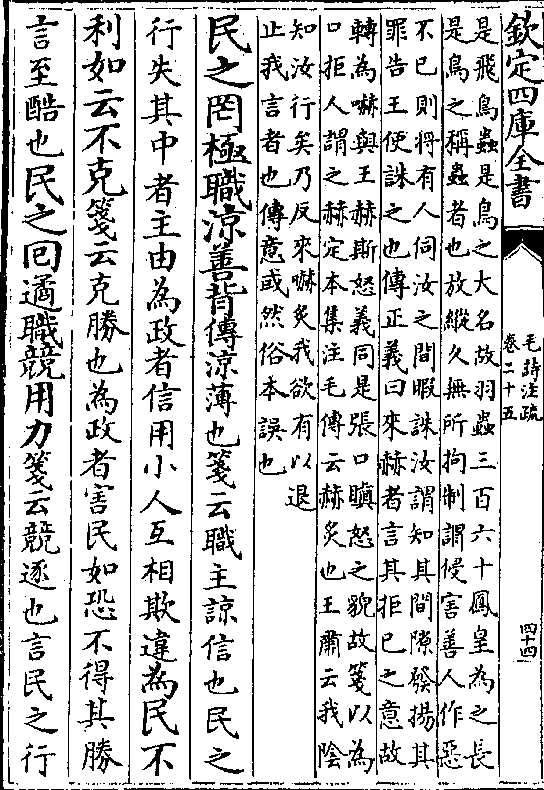 欽定四庫全書
毛詩注疏
卷二十五
四十四
是飛鳥蟲是鳥之大名故羽蟲三百六十鳳皇為之長
是鳥之稱蟲者也放縱久無所拘制謂侵害善人作惡
不已則將有人伺汝之間暇誅汝謂知其間隙發揚其
罪告王便誅之也傳正義曰來赫者言其拒已之意故
轉為嚇與王赫斯怒義同是張口瞋怒之貌故箋以為
口拒人謂之赫定本集注毛傳云赫炙也王肅云我陰
知汝行矣乃反來嚇炙我欲有以退
止我言者也傳意或然俗本誤也
民之罔極職涼善背傳涼薄也箋云職主諒信也民之
行失其中者主由為政者信用小人互相欺違為民不
利如云不克箋云克勝也為政者害民如恐不得其勝
言至酷也民之回遹職競用力箋云競逐也言民之行